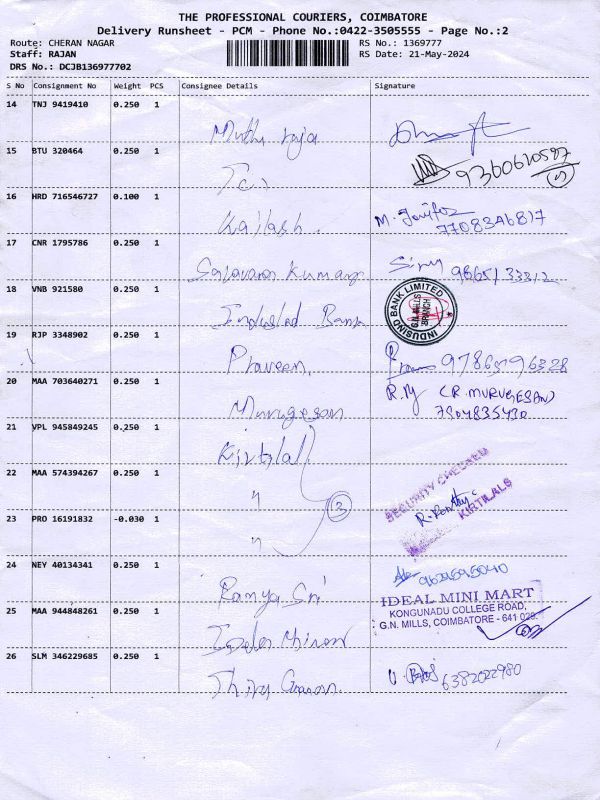 THE PROFESSIONAL COURIERS, COIMBATORE
Delivery Runsheet - PCM - Phone No.:0422-3505555 - Page No.:2
Route: CHERAN NAGAR
RS No.: 1369777
Staff: RAJAN
RS Date: 21-May-2024
DRS No.: DCJB136977702
S No Consignment No Weight PCS Consignee Details Signature
14 TNJ 9419410 0.250 1
Muthu raja
15 BTU 320464 0.250 1
9360610587
16 HRD 716546727 0.100 1
Kailash.
7708346817
17 CNR 1795786 0.250 1
Saravana Kumar
18 VNB 921580 0.250 1
IndusInd Bank
INDUSIND BANK LIMITED
G.N.MILLS
BRANCH
19 RJP 3348902 0.250 1
Praveen. 9786596328
20 MAA 703640271 0.250 1
Murugesan R.M (R. MURUGESAN)
7904835430
21 VPL 945849245 0.250 1
Kirtilal
SECURITY CHECKED
22 MAA 574394267 0.250 1
"
3
KIRTILALS
23 PRO 16191832 -0.030 1
"
24 NEY 40134341 0.250 1
Ranya Sri
25 MAA 944848261 0.250 1
IDEAL MINI MART
KONGUNADU COLLEGE ROAD,
G.N. MILLS, COIMBATORE - 641 029.
26 SLM 346229685 0.250 1
6382022980